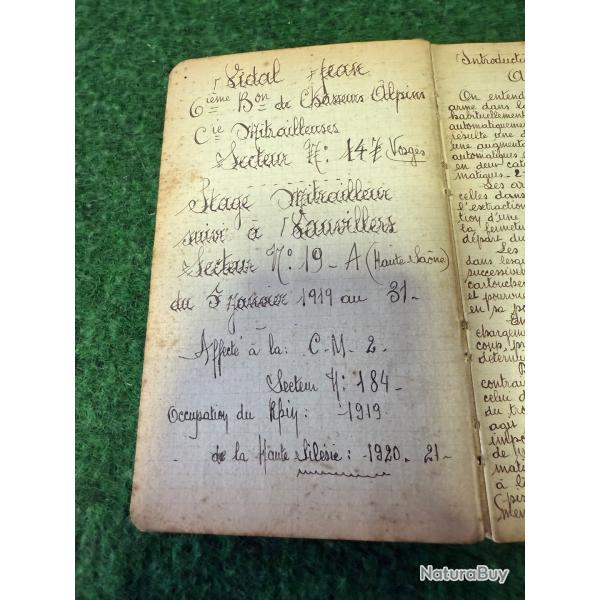 Vidal Jean
6ième Bon de Chasseurs Alpins
Cie Mitrailleuses
Secteur N: 147 Vosges
Stage Mitrailleur
suivi à Vauvillers
Secteur N: 19 - A (Haute Saône)
du 5 Janvier 1919 au 31 -
Affecté à la: C. M - 2 -
Secteur N: 184 -
Occupation du Rhin: -1919
- de la Haute Silésie: -1920. 21 -
Introducti
On entend
arme dans l
habituellement
automatiquemen
résulte une d
une augmenta
automatiques
en deux cat
matiques - 2
Les ar
celles dans
l'extraction
tion d'une
la fermetur
départ du
Les
dans lesq
successive
cartouches
et pourvu
en sa po
chargement
coup, pr
détermin
contrai
celui d
du tro
agu
impo
de
mati
à l
NaturaBuy